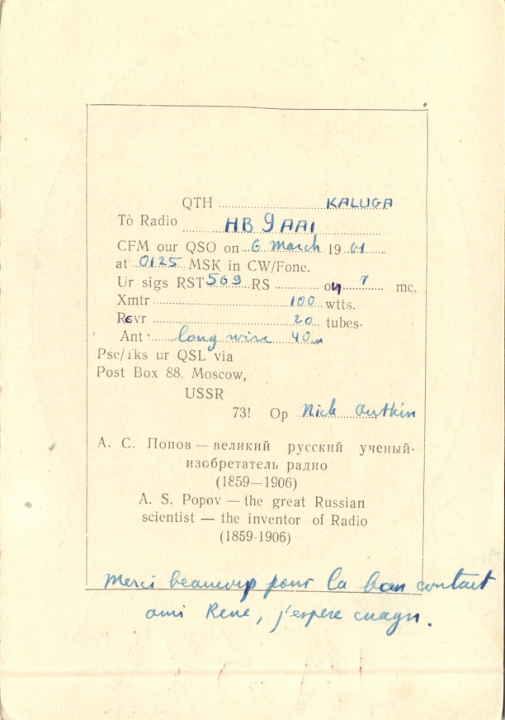 QTH KALUGA
To Radio HB9AAI
CFM our QSO on 6 March 1961
at 0125 MSK in CW/Fone.
Ur sigs RST 569 RS on 7 mc.
Xmtr 100 wtts.
Rcvr 20 tubes.
Ant. long wire 40m
Pse/Tks ur QSL via
Post Box 88, Moscow,
USSR
73! Op Nick
А. С. Попов — великий русский ученый-
изобретатель радио
(1859—1906)
A. S. Popov — the great Russian
scientist — the inventor of Radio
(1859-1906)
Merci beaucoup pour la bon contact
ami Rene, j'espere cuagn.